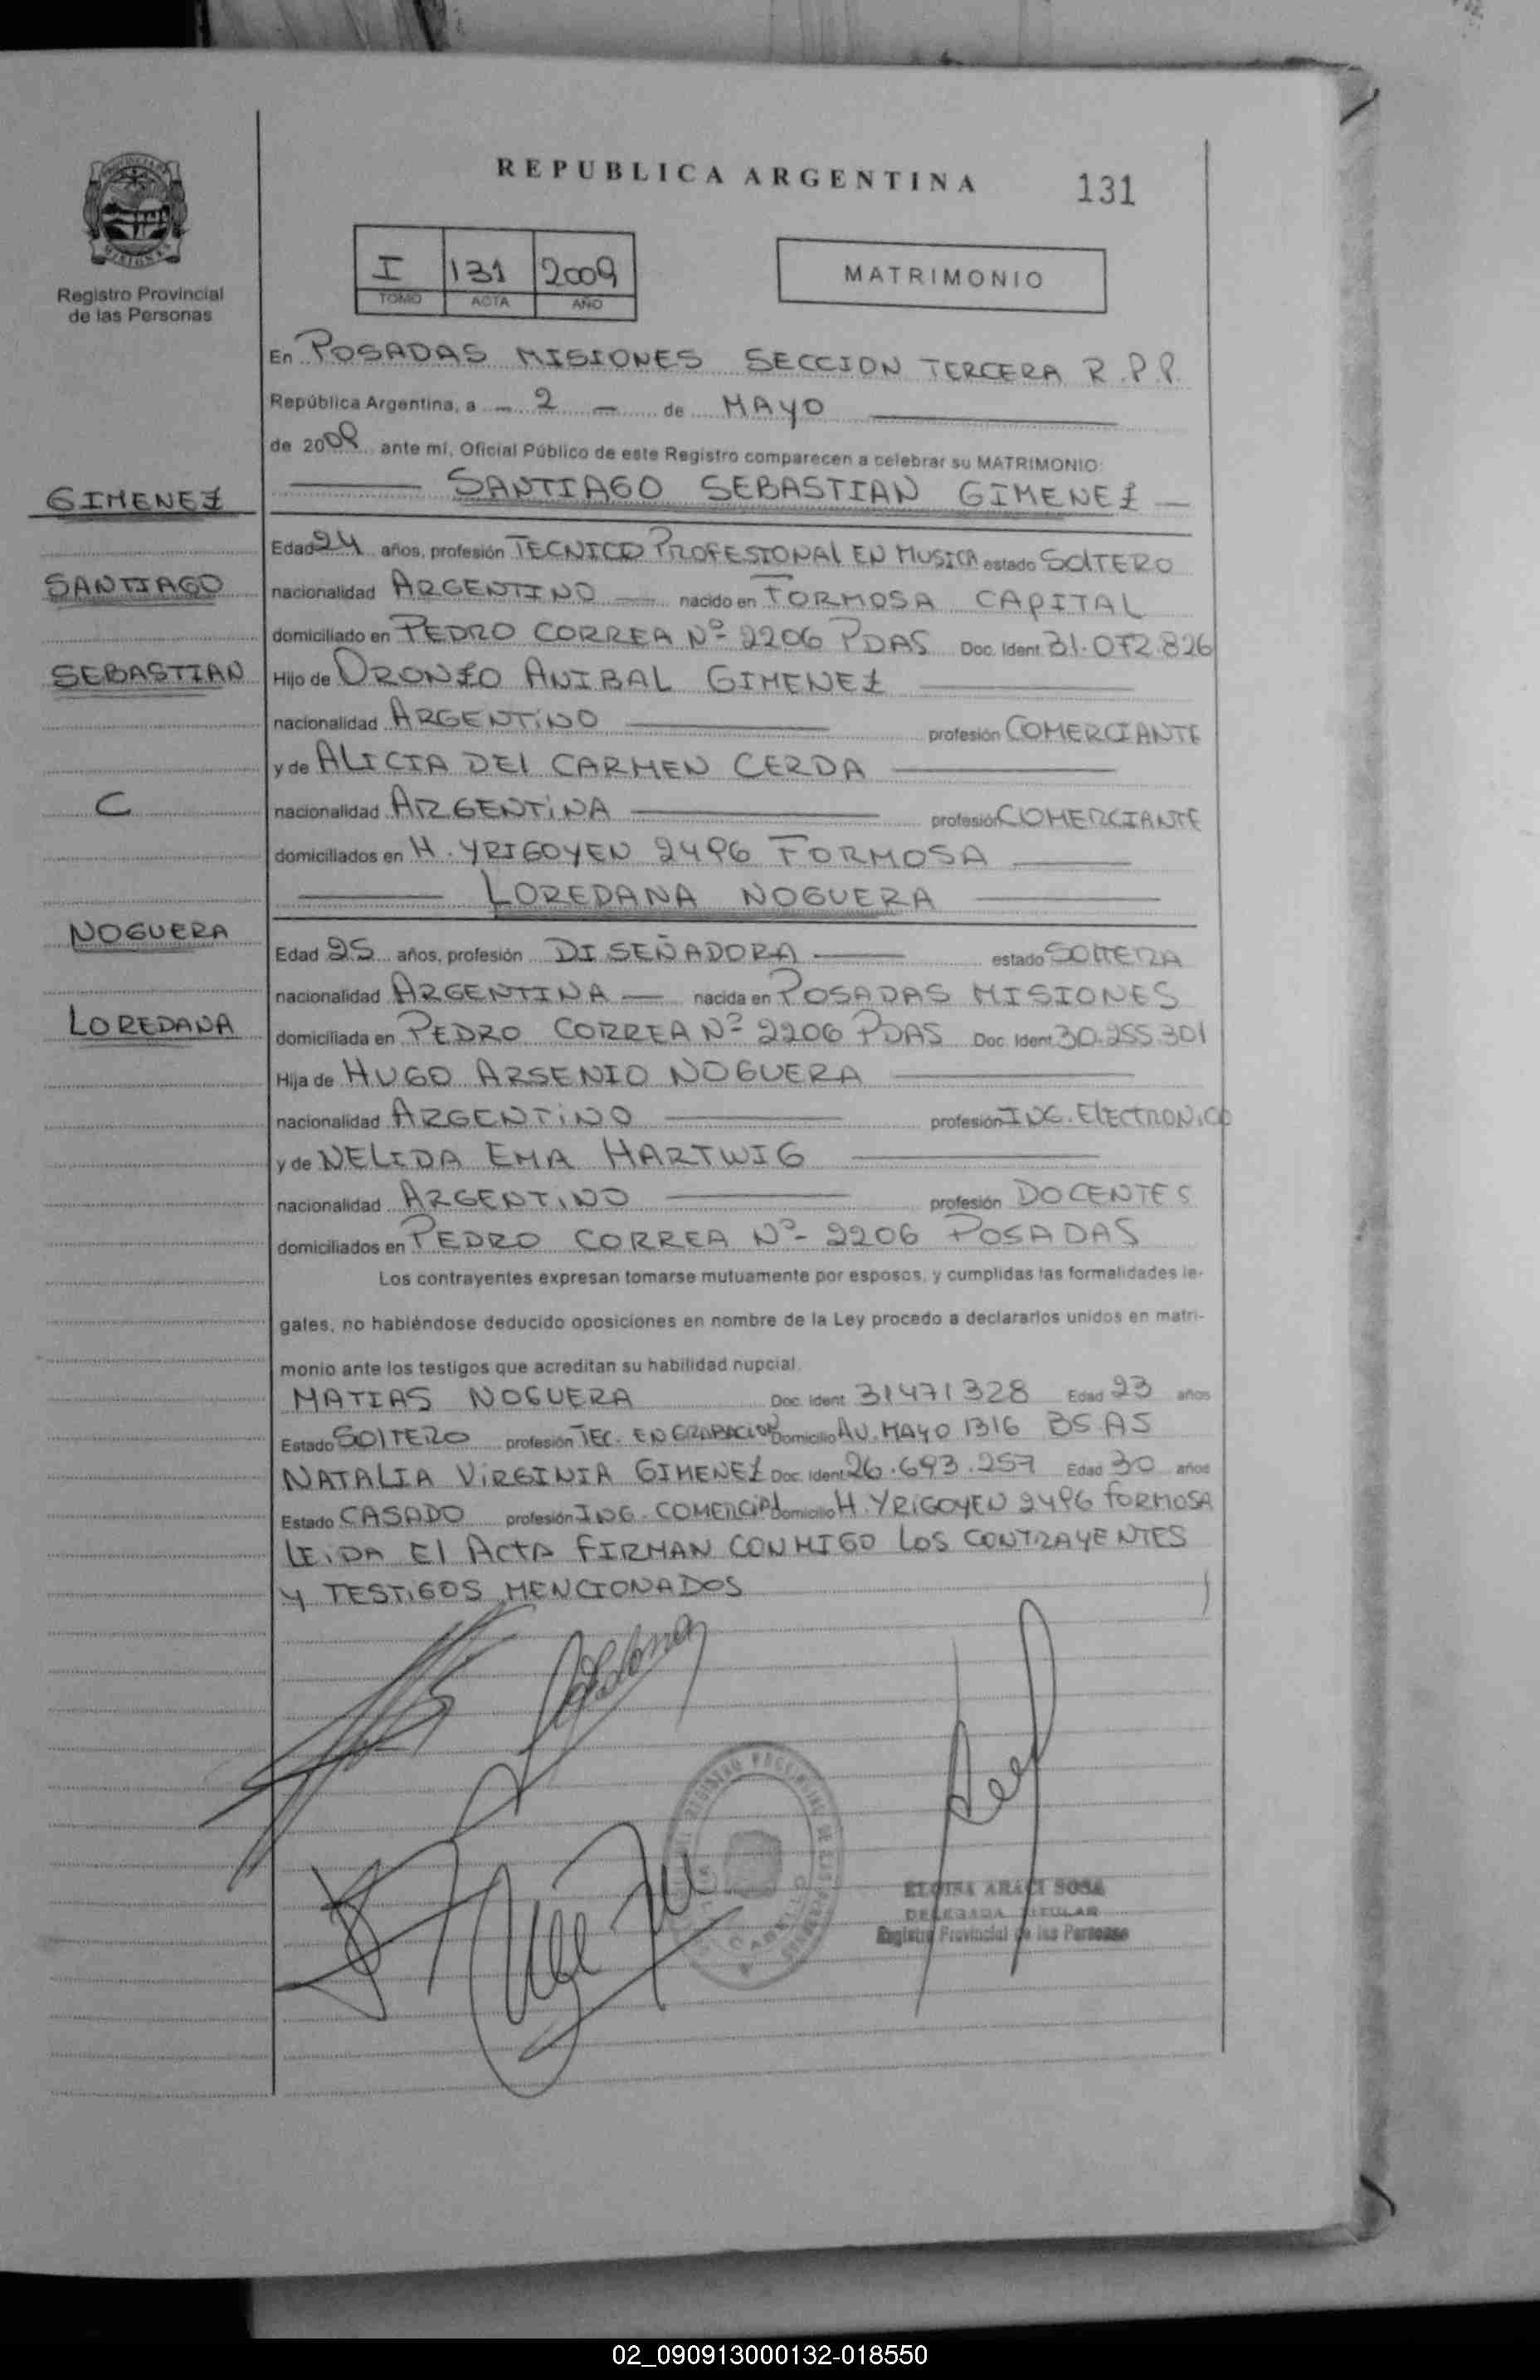 REPUBLICA ARGENTINA
131
I 131 2009
TOMO ACTA AÑO
MATRIMONIO
Registro Provincial
de las Personas
En POSADAS MISIONES SECCION TERCERA R.P.P.
República Argentina, a - 2 - de MAYO
de 2009 ante mí, Oficial Público de este Registro comparecen a celebrar su MATRIMONIO:
SANTIAGO SEBASTIAN GIMENEZ
GIMENEZ
SANTIAGO
SEBASTIAN
C
NOGUERA
LOREDANA
Edad 24 años, profesión TECNICO PROFESIONAL EN MUSICA estado SOLTERO
nacionalidad ARGENTINO nacido en FORMOSA CAPITAL
domiciliado en PEDRO CORREA Nº 2206 PDAS Doc. Ident. 31.072.826
Hijo de ORONZO ANIBAL GIMENEZ
nacionalidad ARGENTINO profesión COMERCIANTE
y de ALICIA DEL CARMEN CERDA
nacionalidad ARGENTINA profesión COMERCIANTE
domiciliados en H. YRIGOYEN 2496 FORMOSA
LOREDANA NOGUERA
Edad 25 años, profesión DISEÑADORA estado SOLTERA
nacionalidad ARGENTINA nacida en POSADAS MISIONES
domiciliada en PEDRO CORREA Nº 2206 PDAS Doc. Ident. 30.255.301
Hija de HUGO ARSENIO NOGUERA
nacionalidad ARGENTINO profesión ING. ELECTRONICO
y de NELIDA EMA HARTWIG
nacionalidad ARGENTINO profesión DOCENTES
domiciliados en PEDRO CORREA Nº 2206 POSADAS
Los contrayentes expresan tomarse mutuamente por esposos, y cumplidas las formalidades le-
gales, no habiéndose deducido oposiciones en nombre de la Ley procedo a declararlos unidos en matri-
monio ante los testigos que acreditan su habilidad nupcial.
MATIAS NOGUERA Doc. Ident. 31471328 Edad 23 años
Estado SOLTERO profesión TEC. EN GRABACION Domicilio AV. MAYO 1316 BS AS
NATALIA VIRGINIA GIMENEZ Doc. Ident. 26.693.257 Edad 30 años
Estado CASADO profesión ING. COMERCIAL Domicilio H. YRIGOYEN 2496 FORMOSA
LEIDA EL ACTA FIRMAN CONMIGO LOS CONTRAYENTES
Y TESTIGOS MENCIONADOS
ELOISA ARACI SOSA
DELEGADA TITULAR
Registro Provincial de las Personas
02_090913000132-018550